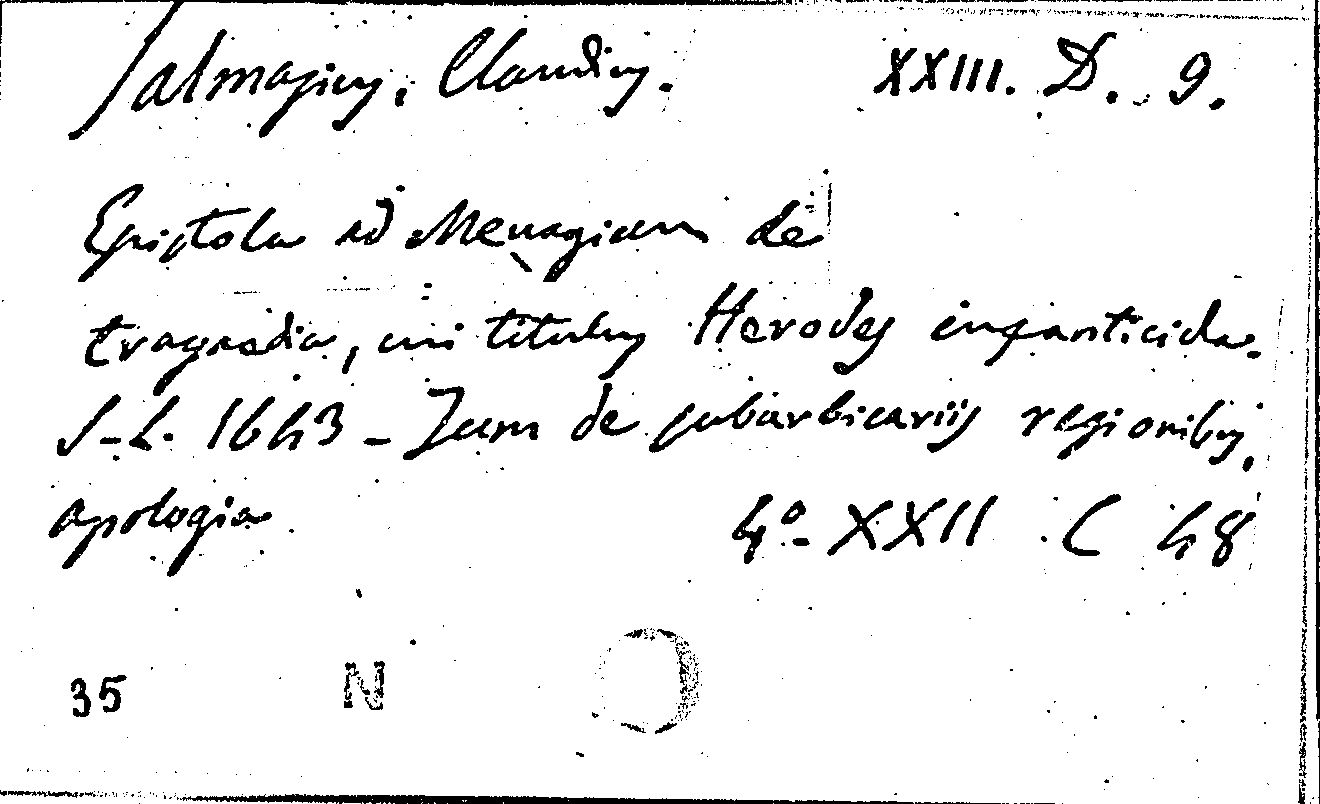 Salmasius, Claudius. XXIII. D. 9.
Epistola ad Menagium de
tragoedia, cui titulus Herodes infanticida.
S-L. 1643 - Jum de suburbicariis regionibus,
apologia 4º - XXII C 48
35 N